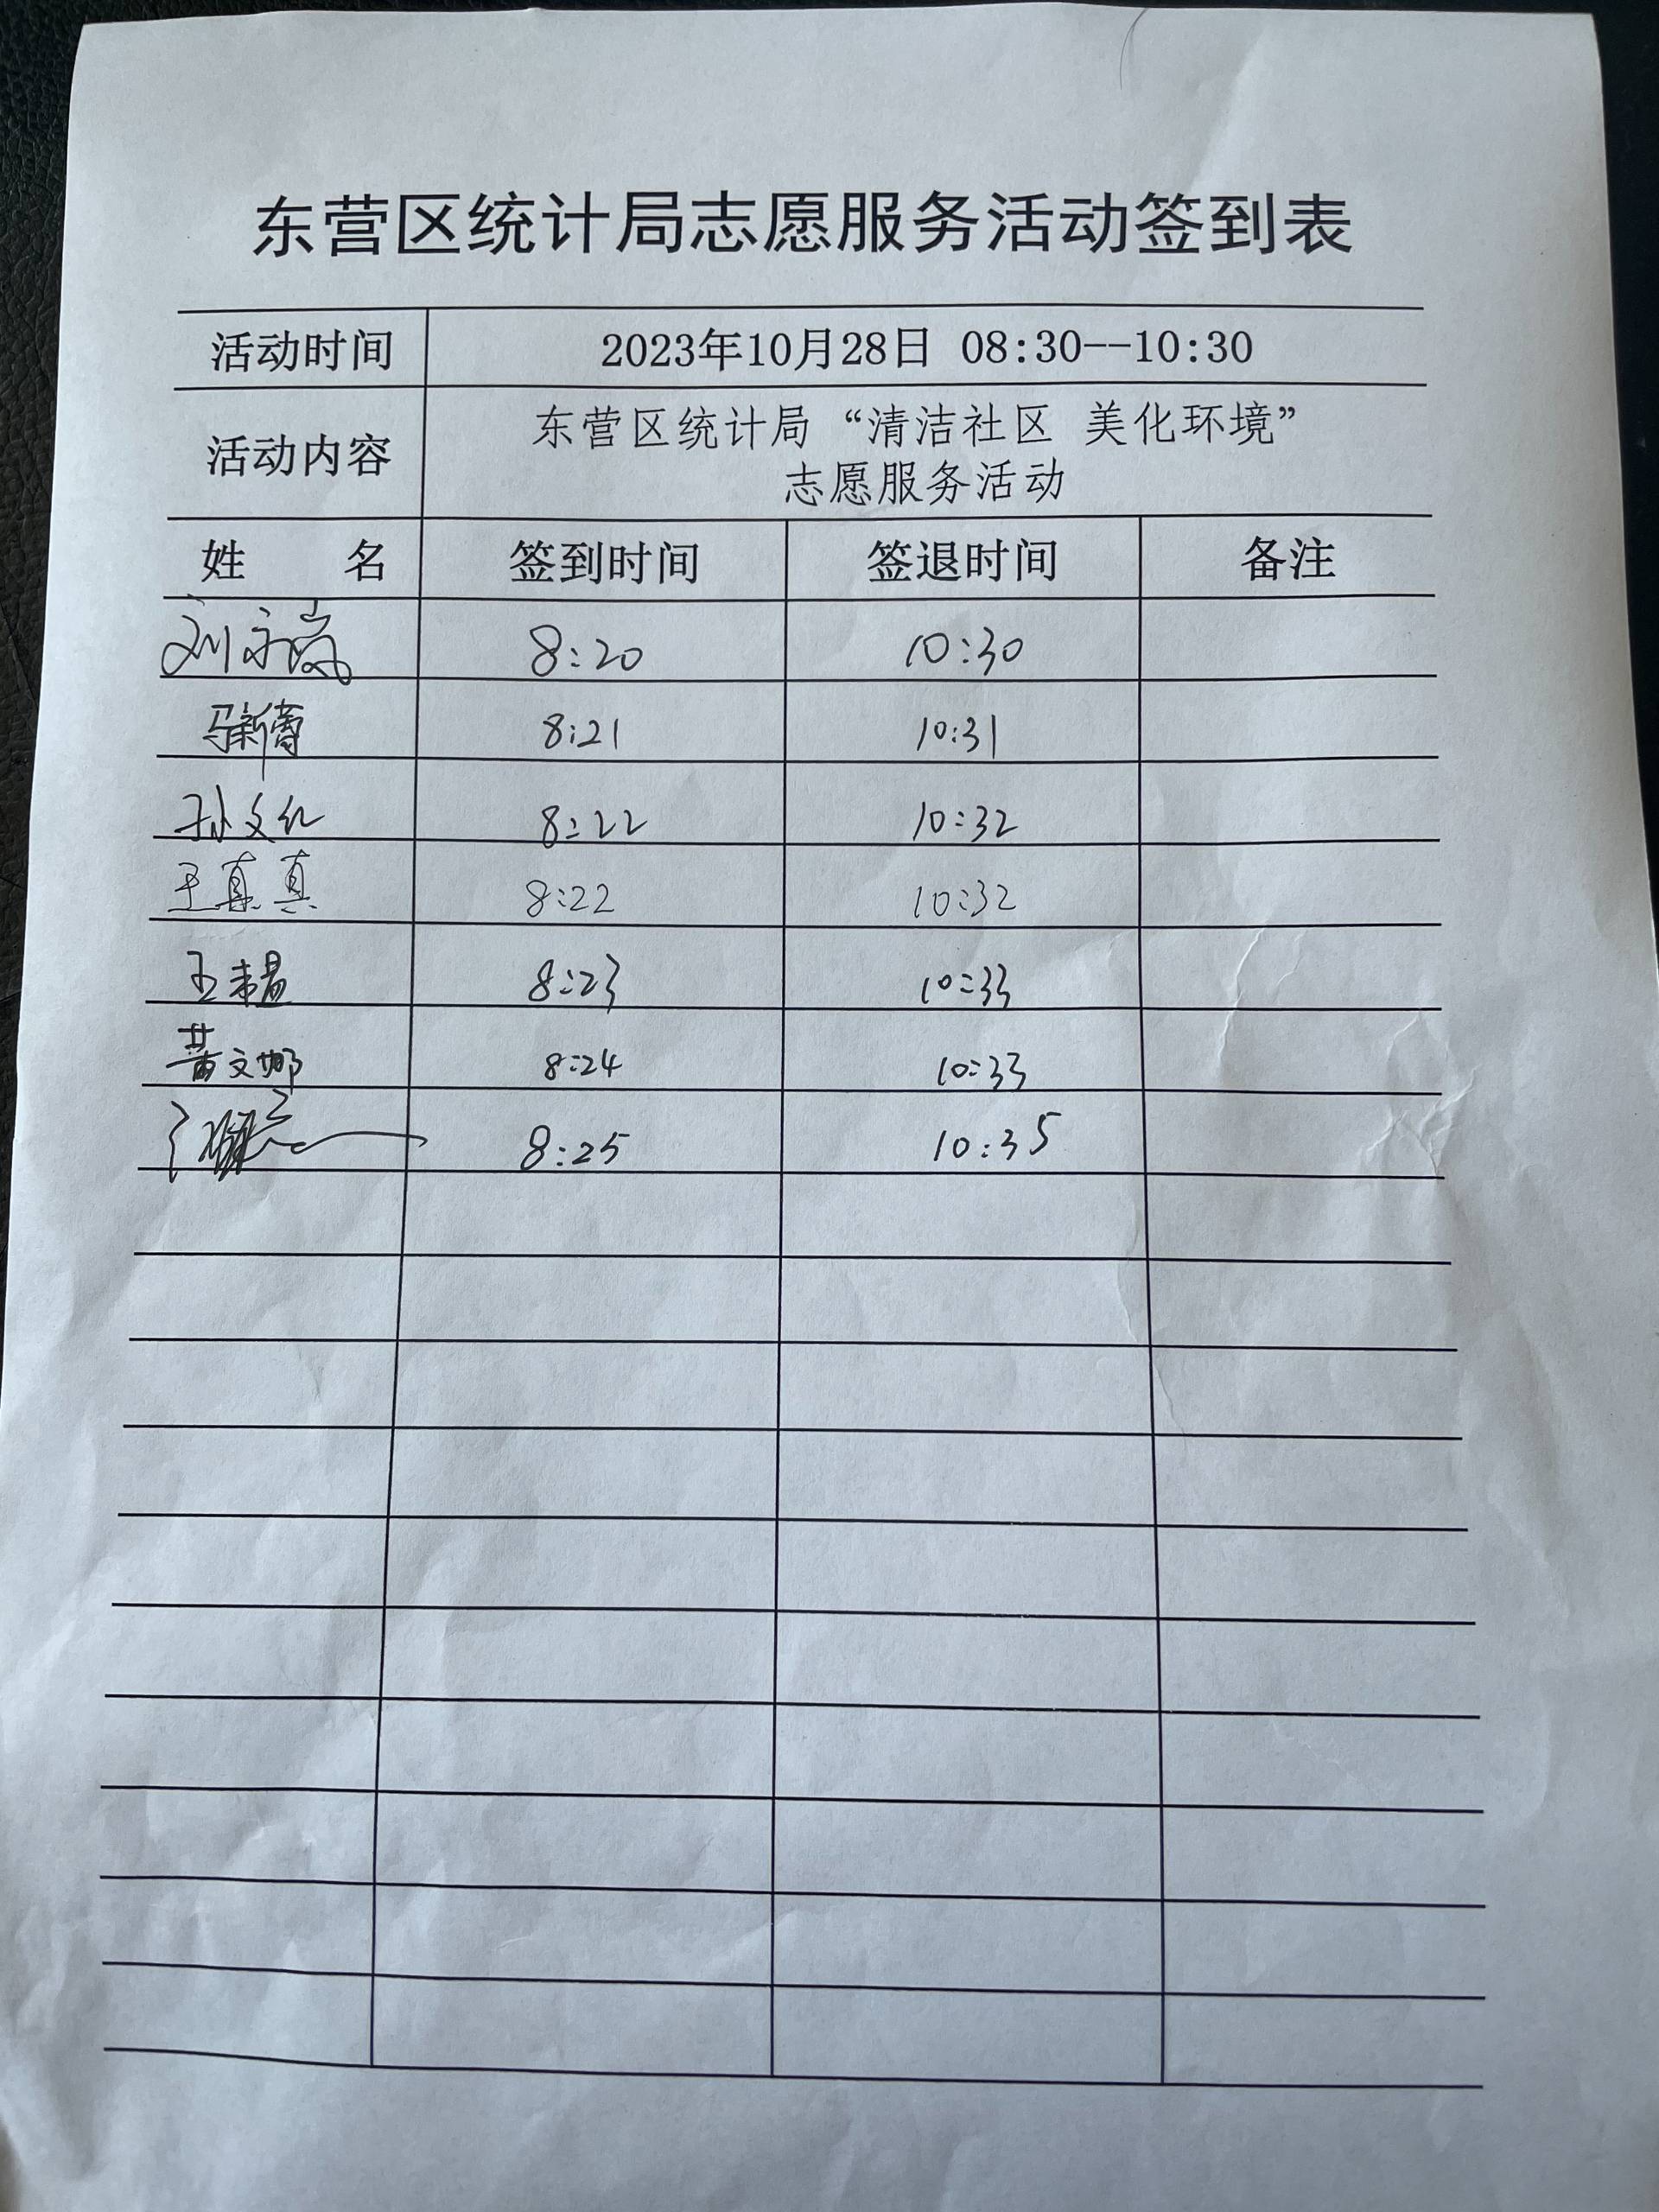 东营区统计局志愿服务活动签到表
活动时间 2023年10月28日 08:30--10:30
活动内容 东营区统计局“清洁社区 美化环境”
志愿服务活动
姓 名 签到时间 签退时间 备注
刘 8:20 10:30
马新蕾 8:21 10:31
孙文红 8:22 10:32
王真真 8:22 10:32
王 8:23 10:33
黄文娜 8:24 10:33
8:25 10:35